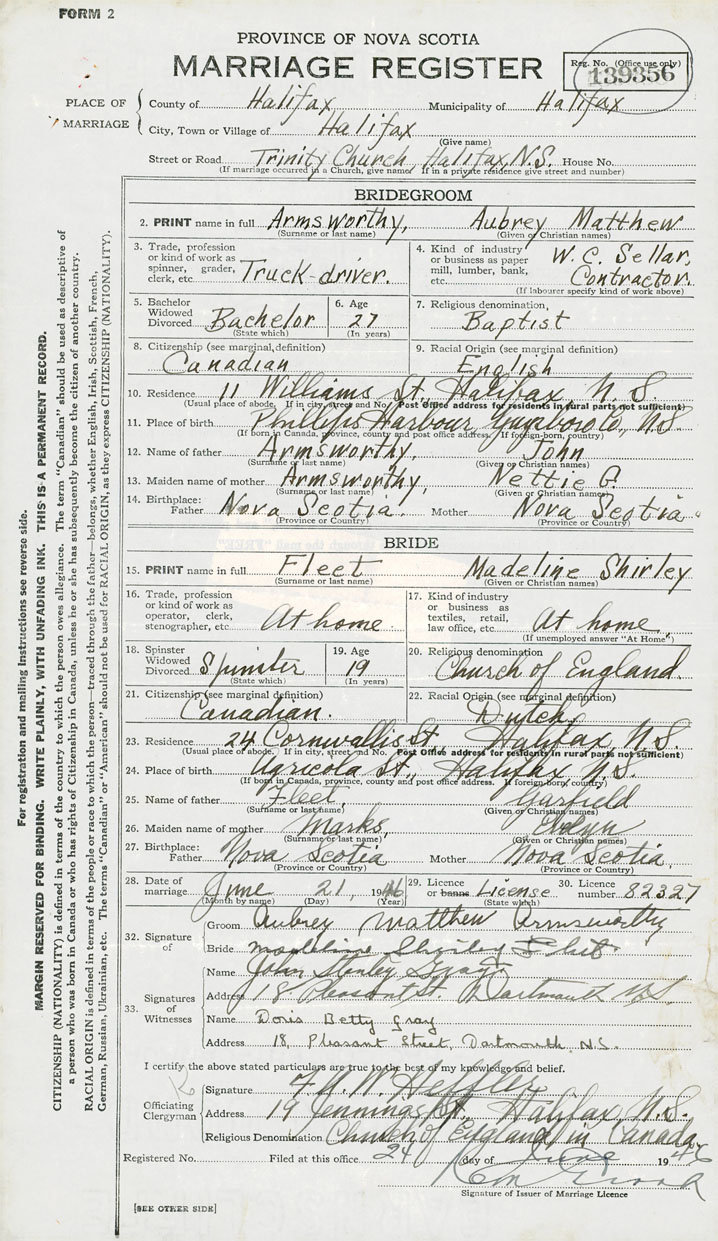 FORM 2
PROVINCE OF NOVA SCOTIA
MARRIAGE REGISTER
Reg. No. (Office use only)
139356
PLACE OF MARRIAGE
County of Halifax Municipality of Halifax
City, Town or Village of Halifax
(Give name)
Street or Road Trinity Church, Halifax, N.S. House No.
(If marriage occurred in a Church, give name) (If in a private residence give street and number)
BRIDEGROOM
2. PRINT name in full Armsworthy, Aubrey Matthew
(Surname or last name) (Given or Christian names)
3. Trade, profession or kind of work as spinner, grader, clerk, etc. Truck-driver.
4. Kind of industry or business as paper mill, lumber, bank, etc. W. C. Sellar, Contractor.
(If labourer specify kind of work above)
5. Bachelor Widowed Divorced Bachelor
(State which)
6. Age 27
(In years)
7. Religious denomination
Baptist
8. Citizenship (see marginal definition)
Canadian
9. Racial Origin (see marginal definition)
English
10. Residence 11 Williams St., Halifax, N. S.
(Usual place of abode. If in city, street and No. Post Office address for residents in rural parts not sufficient)
11. Place of birth Harbour, Co., N.S.
(If born in Canada, province, county and post office address. If foreign-born, country)
12. Name of father Armsworthy, John
(Surname or last name) (Given or Christian names)
13. Maiden name of mother Armsworthy, Nettie G.
(Surname or last name) (Given or Christian names)
14. Birthplace: Father Nova Scotia. Mother Nova Scotia.
(Province or Country) (Province or Country)
BRIDE
15. PRINT name in full Fleet Madeline Shirley
(Surname or last name) (Given or Christian names)
16. Trade, profession or kind of work as operator, clerk, stenographer, etc. At home
17. Kind of industry or business as textiles, retail, law office, etc. At home.
(If unemployed answer "At Home")
18. Spinster Widowed Divorced Spinster
(State which)
19. Age 19
(In years)
20. Religious denomination
Church of England.
21. Citizenship (see marginal definition)
Canadian.
22. Racial Origin (see marginal definition)
Dutch
23. Residence 24 Cornwallis St. Halifax, N. S.
(Usual place of abode. If in city, street and No. Post Office address for residents in rural parts not sufficient)
24. Place of birth Agricola St., Halifax N. S.
(If born in Canada, province, county and post office address. If foreign born, country)
25. Name of father Fleet, Garfield
(Surname or last name) (Given or Christian names)
26. Maiden name of mother Marks, Evelyn
(Surname or last name) (Given or Christian names)
27. Birthplace: Father Nova Scotia Mother Nova Scotia.
(Province or Country) (Province or Country)
28. Date of marriage June 21, 1946
(Month by name) (Day) (Year)
29. Licence or banns License
(State which)
30. Licence number 82327
32. Signature of
Groom Aubrey Matthew Armsworthy
Bride Madeline Shirley Fleet
33. Signatures of Witnesses
Name John Stanley Gray
Address 18 Pleasant St. Dartmouth N.S.
Name Doris Betty Gray
Address 18, Pleasant Street, Dartmouth, N.S.
I certify the above stated particulars are true to the best of my knowledge and belief.
Officiating Clergyman
Signature W. Heffler
Address 19 Jennings St., Halifax, N.S.
Religious Denomination Church of England in Canada
Registered No. Filed at this office 24 day of June 1946
Signature of Issuer of Marriage Licence
[SEE OTHER SIDE]
For registration and mailing instructions see reverse side.
MARGIN RESERVED FOR BINDING. WRITE PLAINLY, WITH UNFADING INK. THIS IS A PERMANENT RECORD.
CITIZENSHIP (NATIONALITY) is defined in terms of the country to which the person owes allegiance. The term "Canadian" should be used as descriptive of
a person who was born in Canada or who has rights of Citizenship in Canada, unless he or she has subsequently become the citizen of another country.
RACIAL ORIGIN is defined in terms of the people or race to which the person—traced through the father—belongs, whether English, Irish, Scottish, French,
German, Russian, Ukrainian, etc. The terms "Canadian" or "American" should not be used for RACIAL ORIGIN, as they express CITIZENSHIP (NATIONALITY).